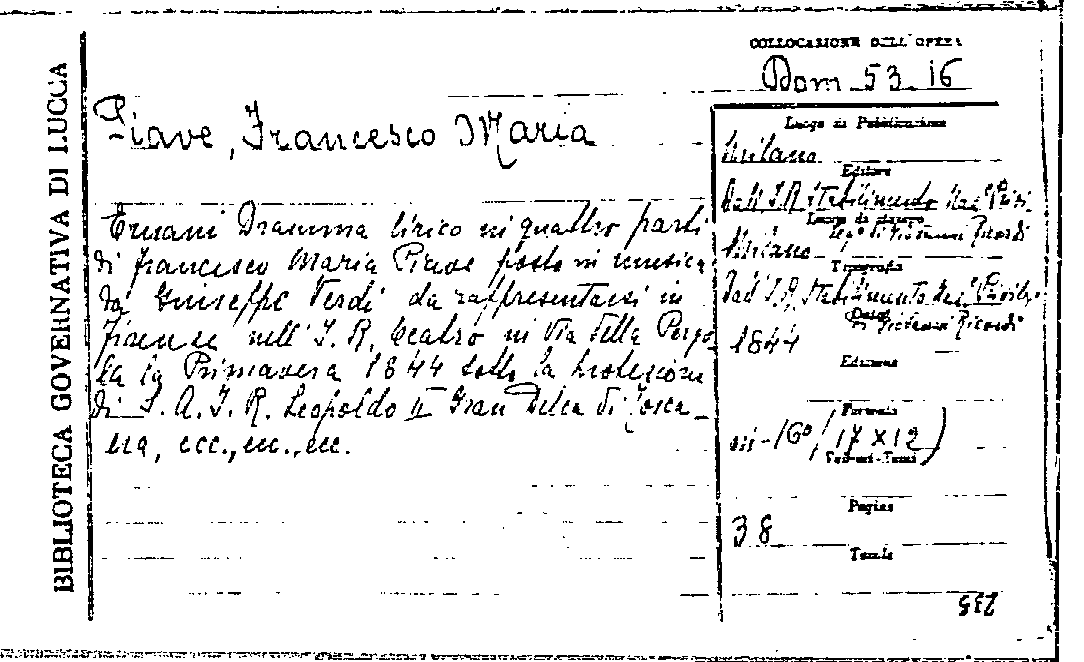 BIBLIOTECA GOVERNATIVA DI LUCCA
COLLOCAZIONE DELL'OPERA
Dom 53.16
Piave, Francesco Maria
Ernani Dramma lirico in quattro parti
di Francesco Maria Piave posto in musica
da Guiseffe Verdi da rappresentarsi in
Firenze nell'I. R. teatro in Via della Pergo
la la Primavera 1844 sotto la protezione
di S. A. I. R. Leopoldo II Gran Duca di Tosca_
na, ecc., ecc., ecc.
Luogo di Pubblicazione
Milano
Editore
Dall'I.R. Stabilimento Naz. Privi
leg. di Giovanni Ricordi
Luogo di stampa
Milano
Tipografia
Dall'I.R. Stabilimento Naz. Privile.
di Giovanni Ricordi
Data
1844
Edizione
Formato
in-16° (17 x 12)
Volumi-Tomi
Pagine
38
Tavole
235